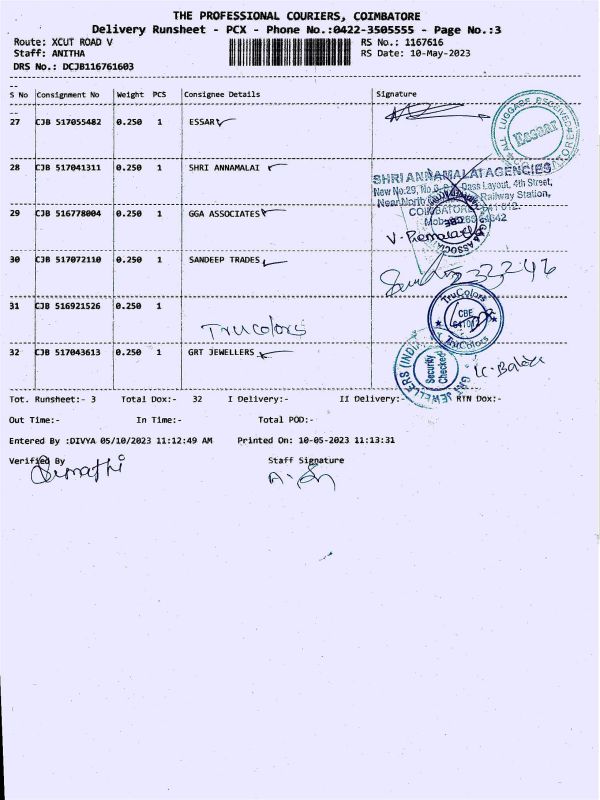 THE PROFESSIONAL COURIERS, COIMBATORE
Delivery Runsheet - PCX - Phone No.:0422-3505555 - Page No.:3
Route: XCUT ROAD V RS No.: 1167616
Staff: ANITHA RS Date: 10-May-2023
DRS No.: DCJB116761603
S No Consignment No Weight PCS Consignee Details Signature
27 CJB 517055482 0.250 1 ESSAR
ALL LUGGAGE RECEIVED
Essar
28 CJB 517041311 0.250 1 SHRI ANNAMALAI
SHRI ANNAMALAI AGENCIES
New No:29, Dass Layout, 4th Street,
Near North Railway Station,
COIMBATORE
29 CJB 516778004 0.250 1 GGA ASSOCIATES
V. Premalatha
30 CJB 517072110 0.250 1 SANDEEP TRADES
31 CJB 516921526 0.250 1
Trucolors
TruColors
CBE
TruColors
32 CJB 517043613 0.250 1 GRT JEWELLERS
GRT JEWELLERS (INDIA)
Security
Checked
Tot. Runsheet:- 3 Total Dox:- 32 I Delivery:- II Delivery:- RTN Dox:-
Out Time:- In Time:- Total POD:-
Entered By :DIVYA 05/10/2023 11:12:49 AM Printed On: 10-05-2023 11:13:31
Verified By Staff Signature